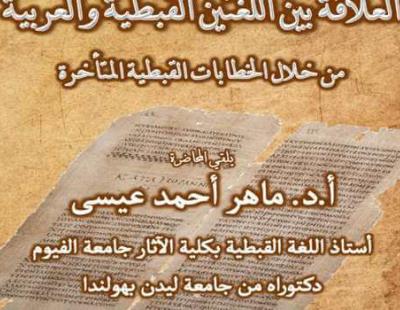 العلاقة بين اللغتين القبطية والعربية
من خلال الخطابات القبطية المتأخرة
يلقي المحاضرة
أ.د. ماهر أحمد عيسى
أستاذ اللغة القبطية بكلية الآثار جامعة الفيوم
دكتوراه من جامعة ليدن بهولندا